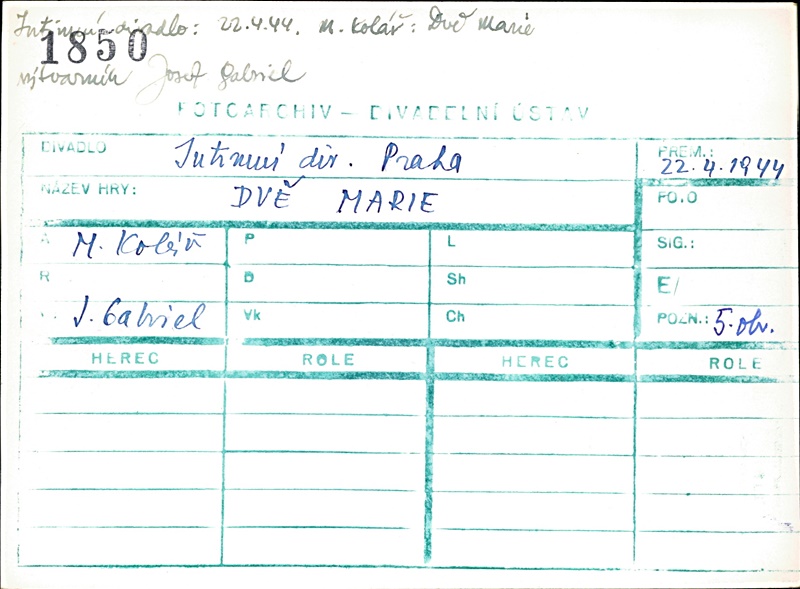 Intimní divadlo: 22.4.44. M. Kolář: Dvě Marie
1850
výtvarník Josef Gabriel
FOTOARCHIV – DIVADELNÍ ÚSTAV
DIVADLO Intimní div. Praha PREM.: 22.4.1944
NÁZEV HRY: DVĚ MARIE FOTO
A M. Kolář P L SIG.:
R D Sh E/
J. Gabriel Vk Ch POZN.: 5. obr.
HEREC ROLE HEREC ROLE